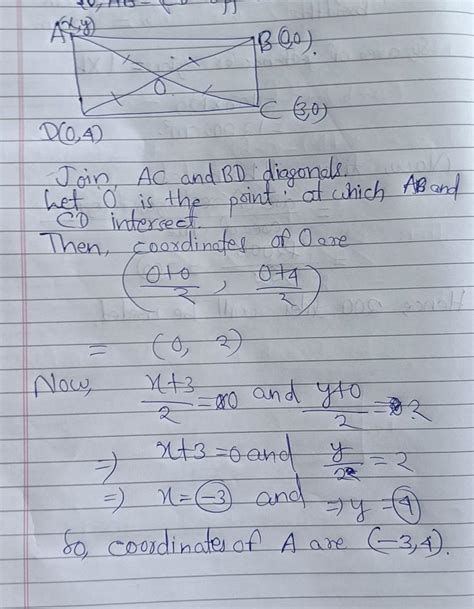 A(x,y)
B(0,0).
O
C (3,0)
D(0,4)
Join AC and BD diagonals.
Let 'O' is the point at which AB and
CD intersect.
Then, coordinates of O are
(0+0/2 , 0+4/2)
= (0, 2)
Now, x+3/2 = 0 and y+0/2 = 2
⇒ x+3 = 0 and y/2 = 2
⇒ x = -3 and ⇒ y = 4
So, coordinates of A are (-3,4).